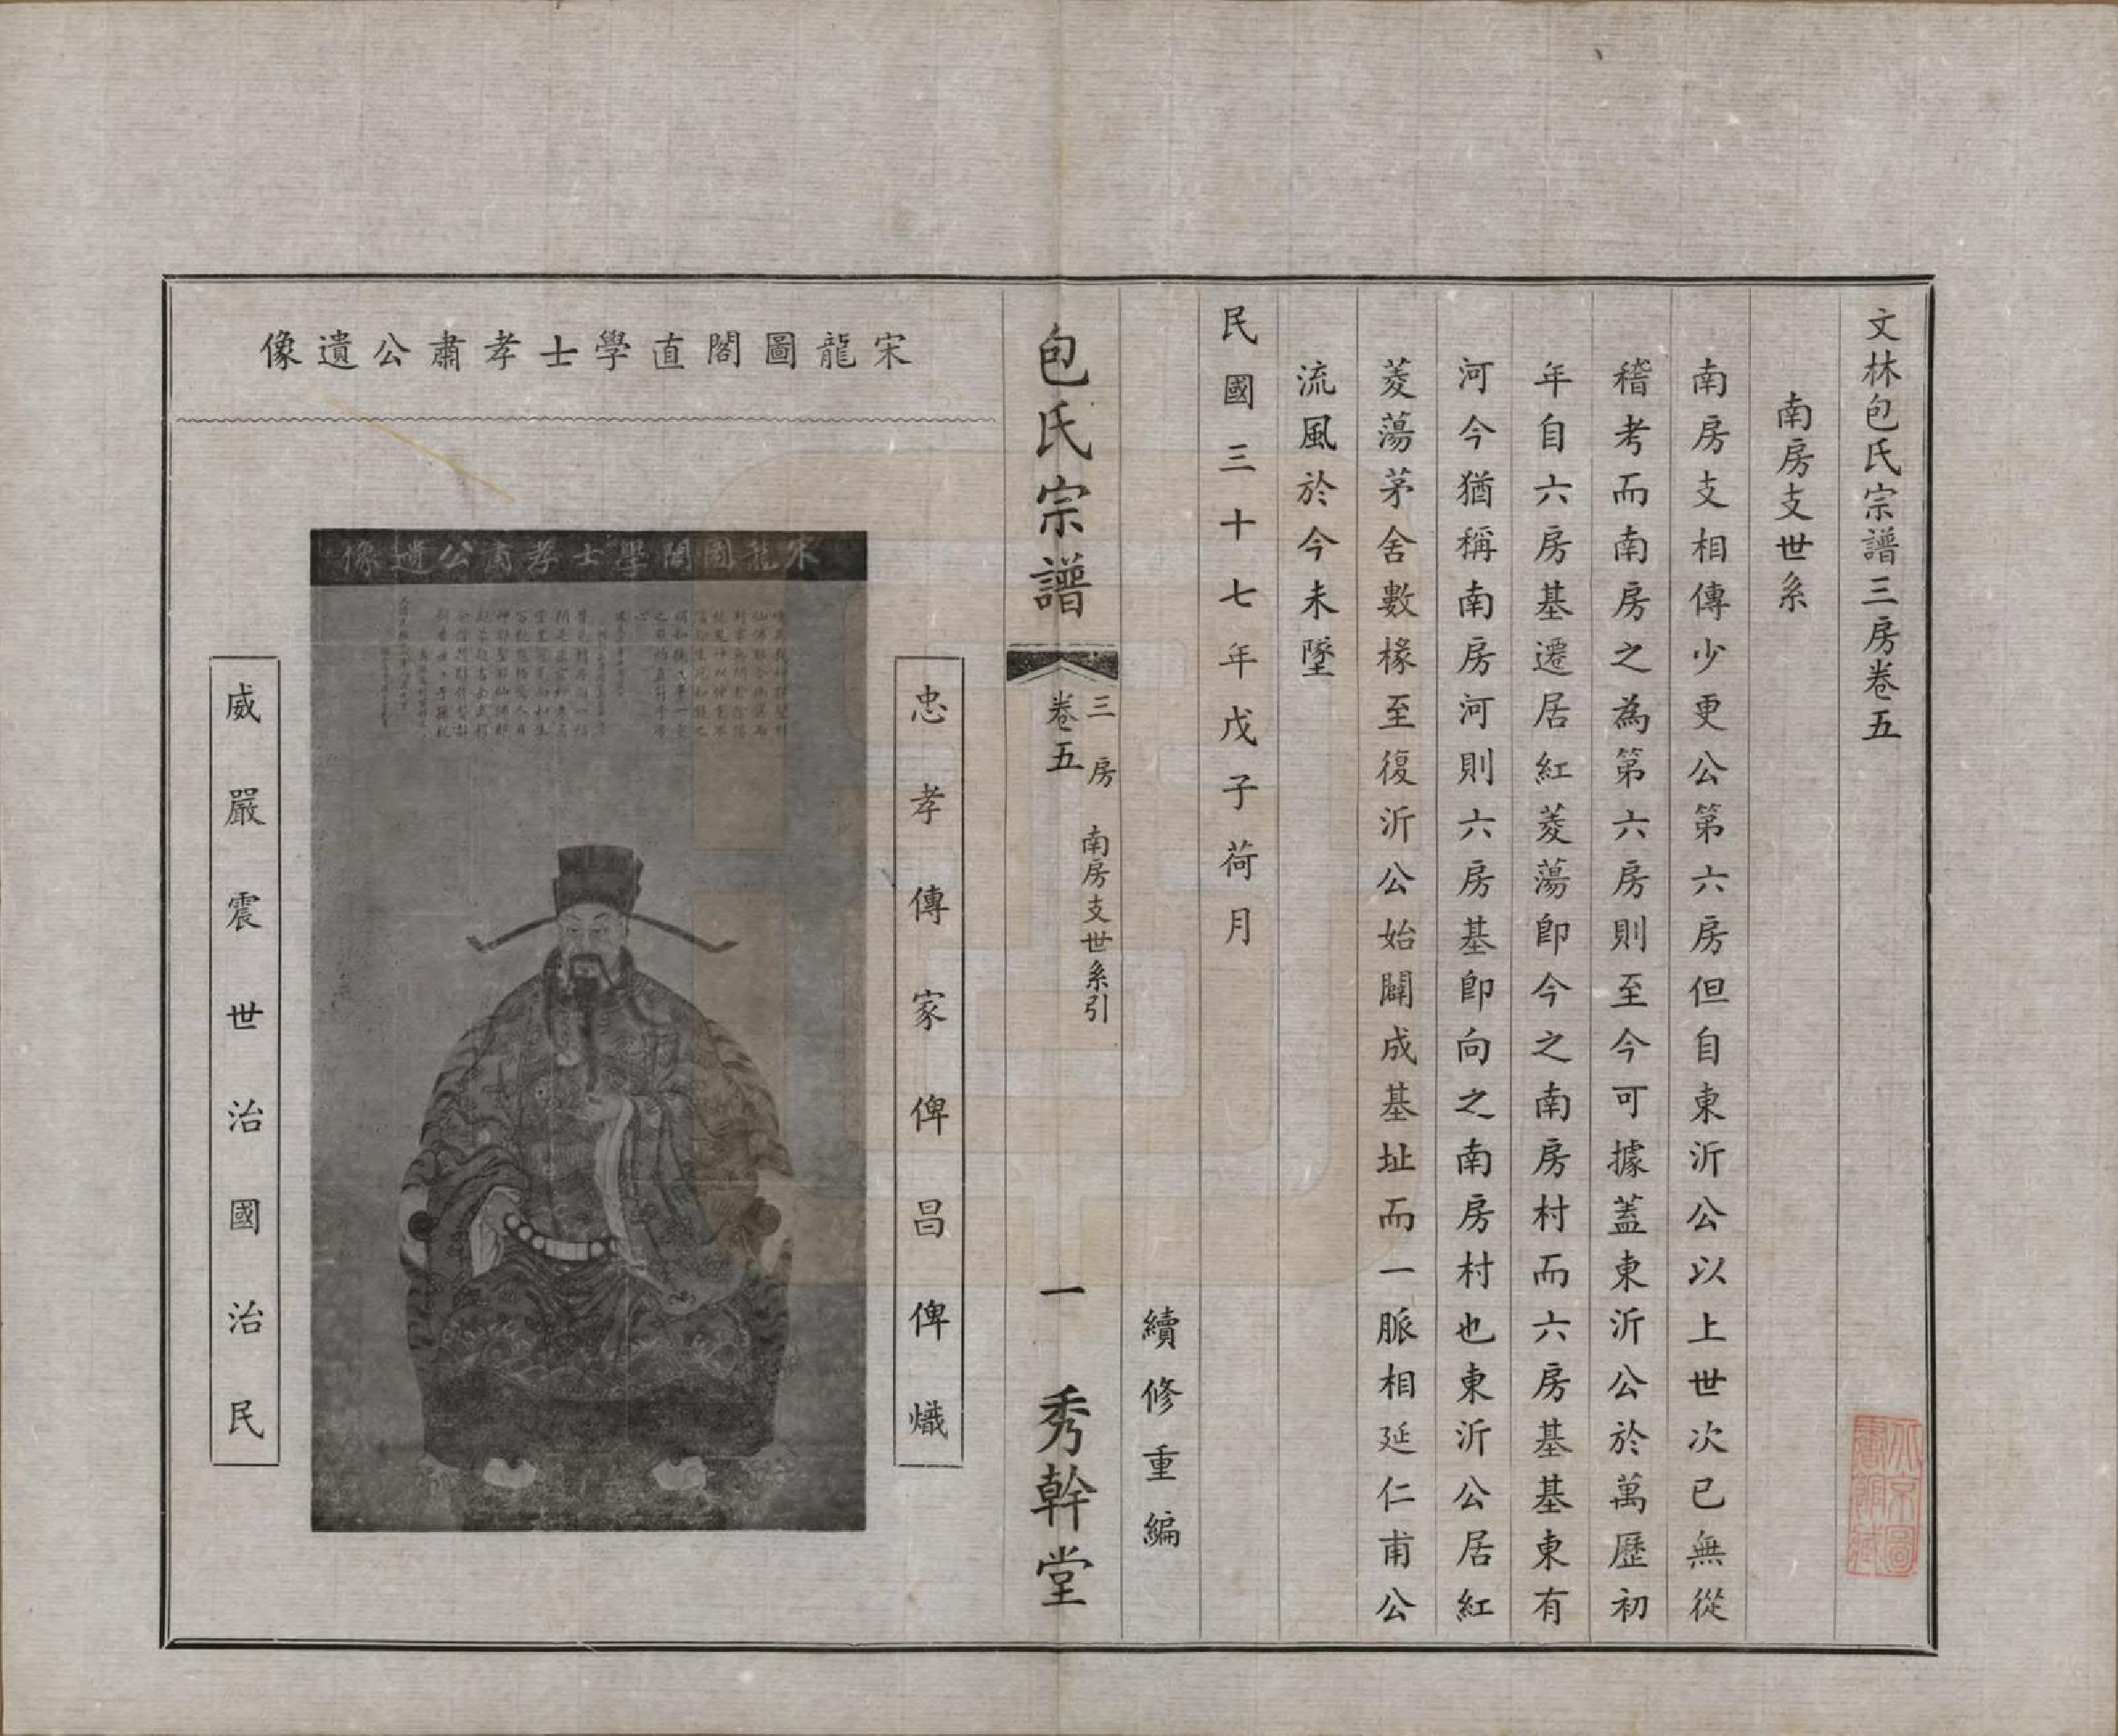 文林包氏宗譜三房卷五
南房支世系
南房支相傳少更公第六房但自東沂公以上世次已無從
稽考而南房之為第六房則至今可據蓋東沂公於萬歷初
年自六房基遷居紅菱蕩卽今之南房村而六房基基東有
河今猶稱南房河則六房基卽向之南房村也東沂公居紅
菱蕩茅舍數椽至復沂公始闢成基址而一脈相延仁甫公
流風於今未墜
民國三十七年戊子荷月
續修重編
包氏宗譜
三房 南房支世系引
卷五
一
秀幹堂
宋龍圖閣直學士孝肅公遺像
忠孝傳家俾昌俾熾
宋龍圖閣學士孝肅公遺像
威嚴震世治國治民